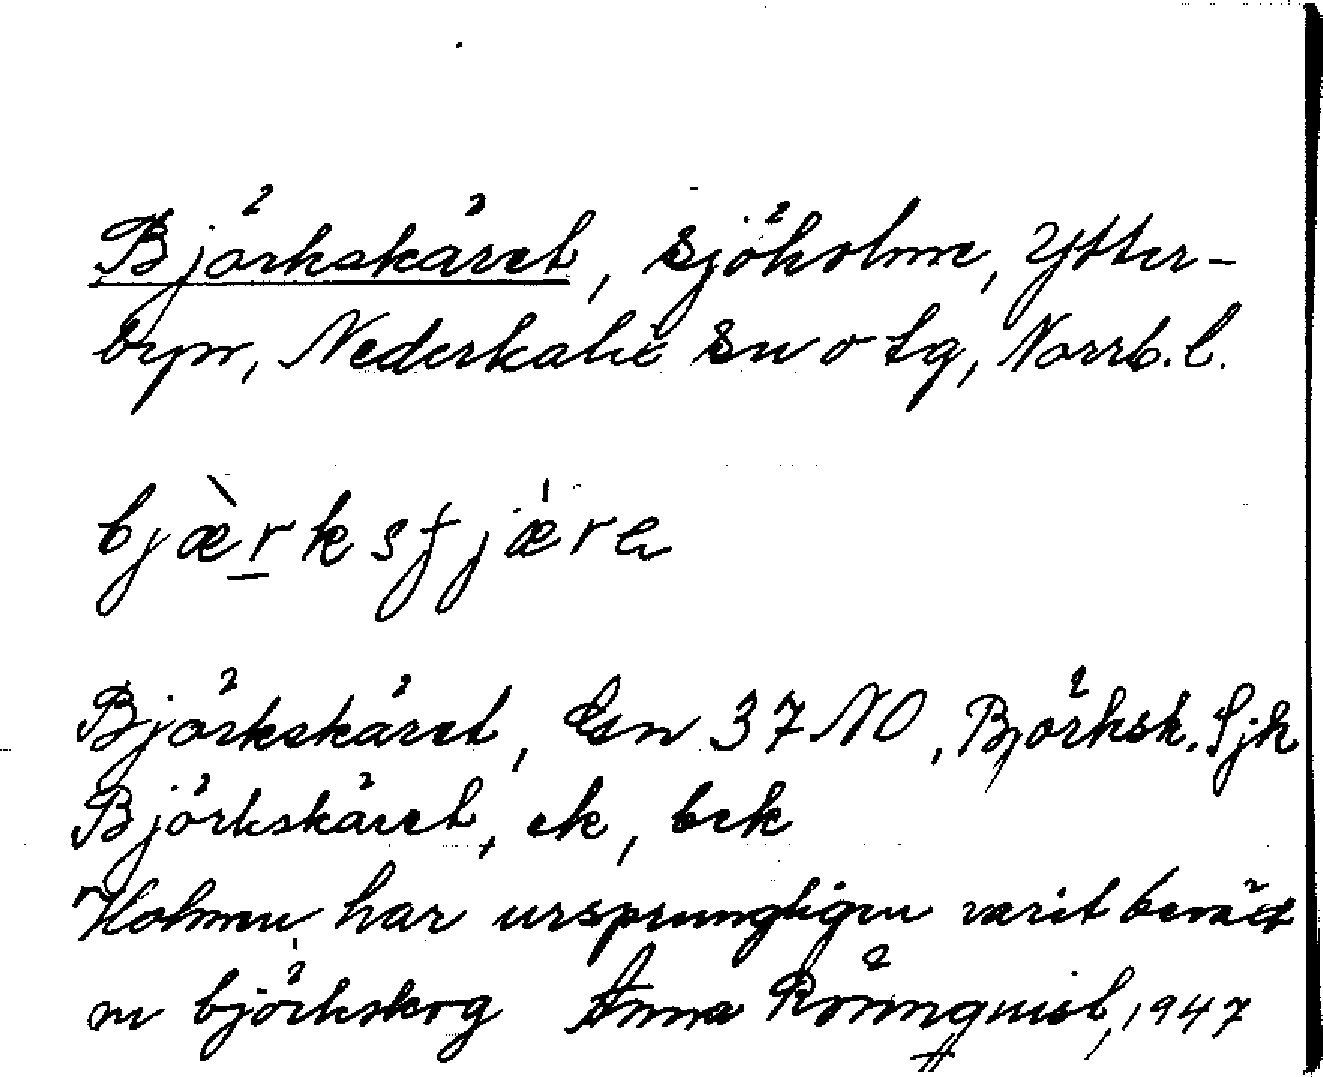 Björkskäret, sjöholme, Ytter-
byn, Nederkalix sn o tg, Norrb. l.
bjæ̀rksfjæ̍re
Björkskäret, Gsn 37 NO, Björksk. Sjk
Björkskäret, ek, bek
Holmen har ursprungligen varit beväxt
m björkskog Anna Rönnquist, 1947